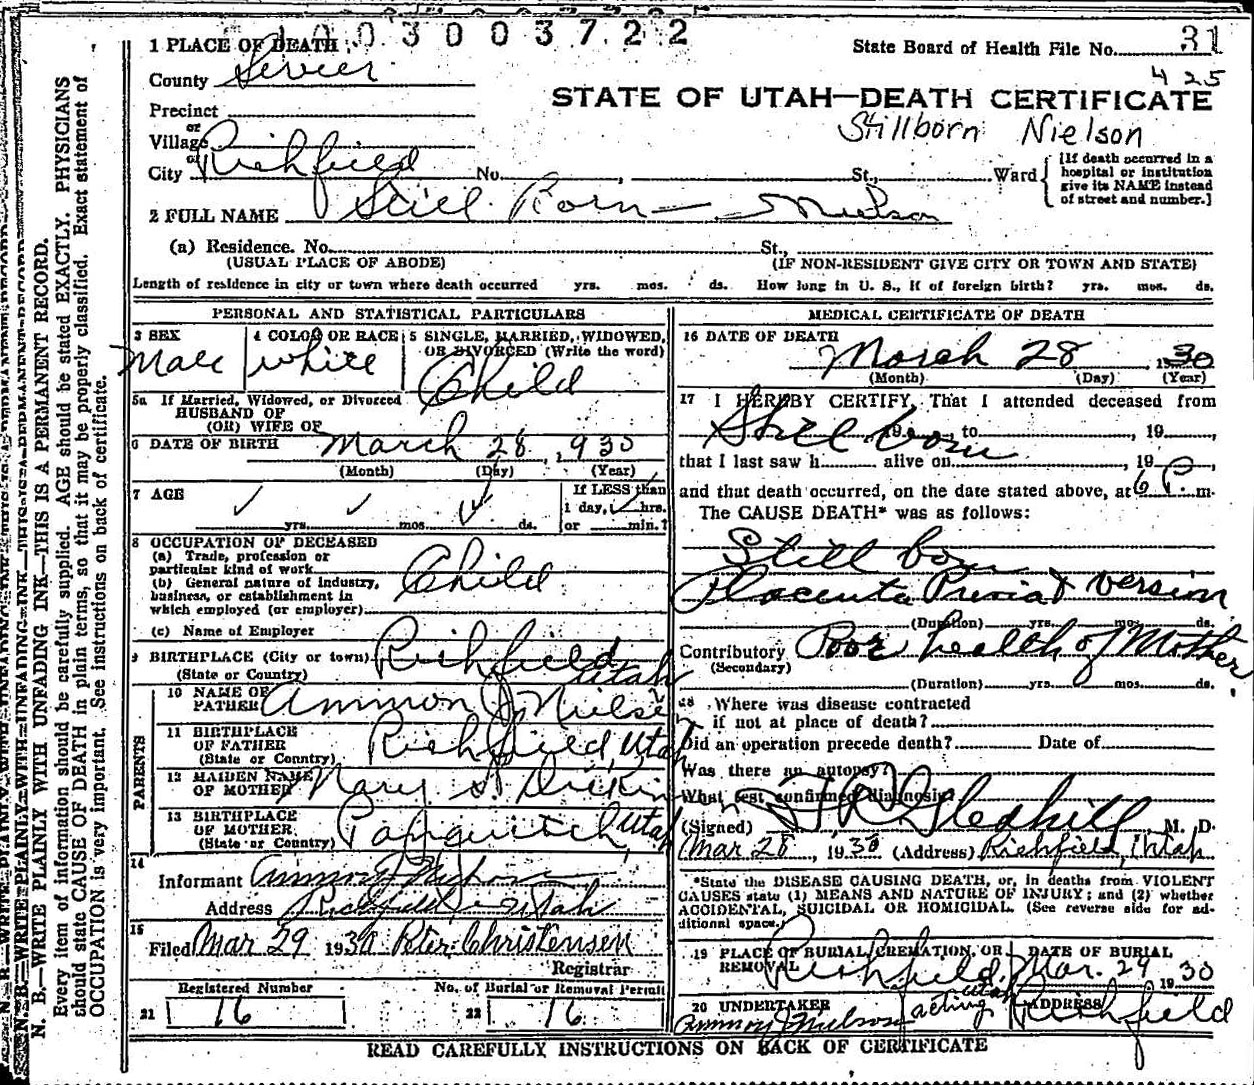 1003003722
1 PLACE OF DEATH
State Board of Health File No. 31
County Sevier
425
STATE OF UTAH—DEATH CERTIFICATE
Precinct
Stillborn Nielson
or
Village
or
City Richfield No. , St., Ward
[If death occurred in a
hospital or institution
give its NAME instead
of street and number.]
2 FULL NAME Still Born Nielson
(a) Residence. No. St.,
(USUAL PLACE OF ABODE) (IF NON-RESIDENT GIVE CITY OR TOWN AND STATE)
Length of residence in city or town where death occurred yrs. mos. ds. How long in U. S., if of foreign birth? yrs. mos. ds.
PERSONAL AND STATISTICAL PARTICULARS
3 SEX
Male
4 COLOR OR RACE
White
5 SINGLE, MARRIED, WIDOWED,
OR DIVORCED (Write the word)
Child
5a If Married, Widowed, or Divorced
HUSBAND OF
(OR) WIFE OF
6 DATE OF BIRTH March 28, 1930
(Month) (Day) (Year)
7 AGE
yrs. mos. ds.
If LESS than
1 day, hrs.
or min.?
8 OCCUPATION OF DECEASED
(a) Trade, profession or
particular kind of work
(b) General nature of industry,
business, or establishment in
which employed (or employer)
Child
(c) Name of Employer
9 BIRTHPLACE (City or town) Richfield
(State or Country) Utah
PARENTS
10 NAME OF
FATHER Ammon J Nielson
11 BIRTHPLACE
OF FATHER
(State or Country)
Richfield, Utah
12 MAIDEN NAME
OF MOTHER Mary
13 BIRTHPLACE
OF MOTHER
(State or Country)
Panguitch, Utah
14
Informant Ammon J Nielson
Address Richfield Utah
15
Filed Mar 29 1930 Peter Christensen
Registrar
Registered Number
21 16
No. of Burial or Removal Permit
22 16
MEDICAL CERTIFICATE OF DEATH
16 DATE OF DEATH
March 28 1930
(Month) (Day) (Year)
17 I HEREBY CERTIFY, That I attended deceased from
Still born 19 , to , 19 ,
that I last saw h alive on , 19 ,
and that death occurred, on the date stated above, at 6 P. m.
The CAUSE DEATH* was as follows:
Still born
Placenta Previa & version
(Duration) yrs. mos. ds.
Contributory Poor health of Mother
(Secondary)
(Duration) yrs. mos. ds.
18 Where was disease contracted
if not at place of death?
Did an operation precede death? Date of
Was there an autopsy?
What test confirmed diagnosis?
(Signed) Gledhill M. D.
Mar 28, 1930 (Address) Richfield, Utah
*State the DISEASE CAUSING DEATH, or, in deaths from VIOLENT
CAUSES state (1) MEANS AND NATURE OF INJURY; and (2) whether
ACCIDENTAL, SUICIDAL OR HOMICIDAL. (See reverse side for ad-
ditional space.)
19 PLACE OF BURIAL, CREMATION, OR
REMOVAL
Richfield, Utah
DATE OF BURIAL
Mar. 29 1930
20 UNDERTAKER
Ammon J Nielson acting
ADDRESS
Richfield
READ CAREFULLY INSTRUCTIONS ON BACK OF CERTIFICATE
N. B.—WRITE PLAINLY WITH UNFADING INK—THIS IS A PERMANENT RECORD.
Every item of information should be carefully supplied. AGE should be stated EXACTLY. PHYSICIANS
should state CAUSE OF DEATH in plain terms, so that it may be properly classified. Exact statement of
OCCUPATION is very important. See instructions on back of certificate.